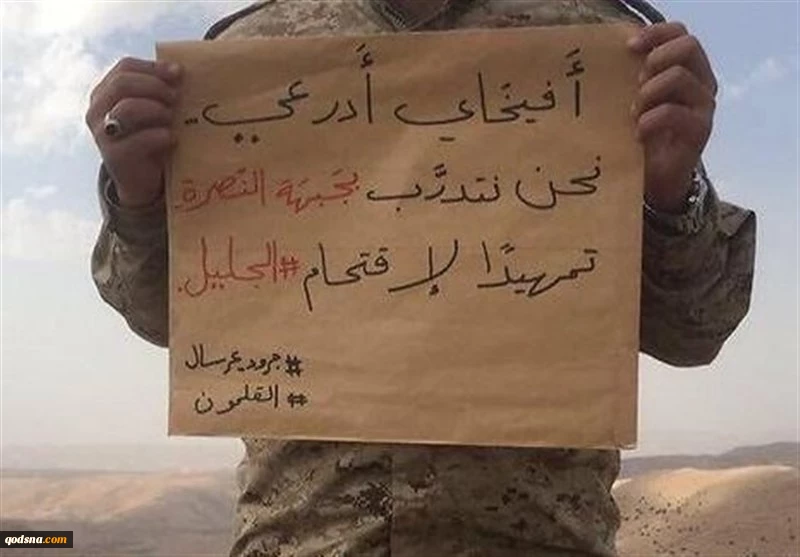 أَفيخاي أَدرعي..
نحن نتدرَّب بجَبهَة النّصرة
تمهيدًا لإقتحام #الجليل.
#جرود_عرسال
#القلمون
qodsna.com